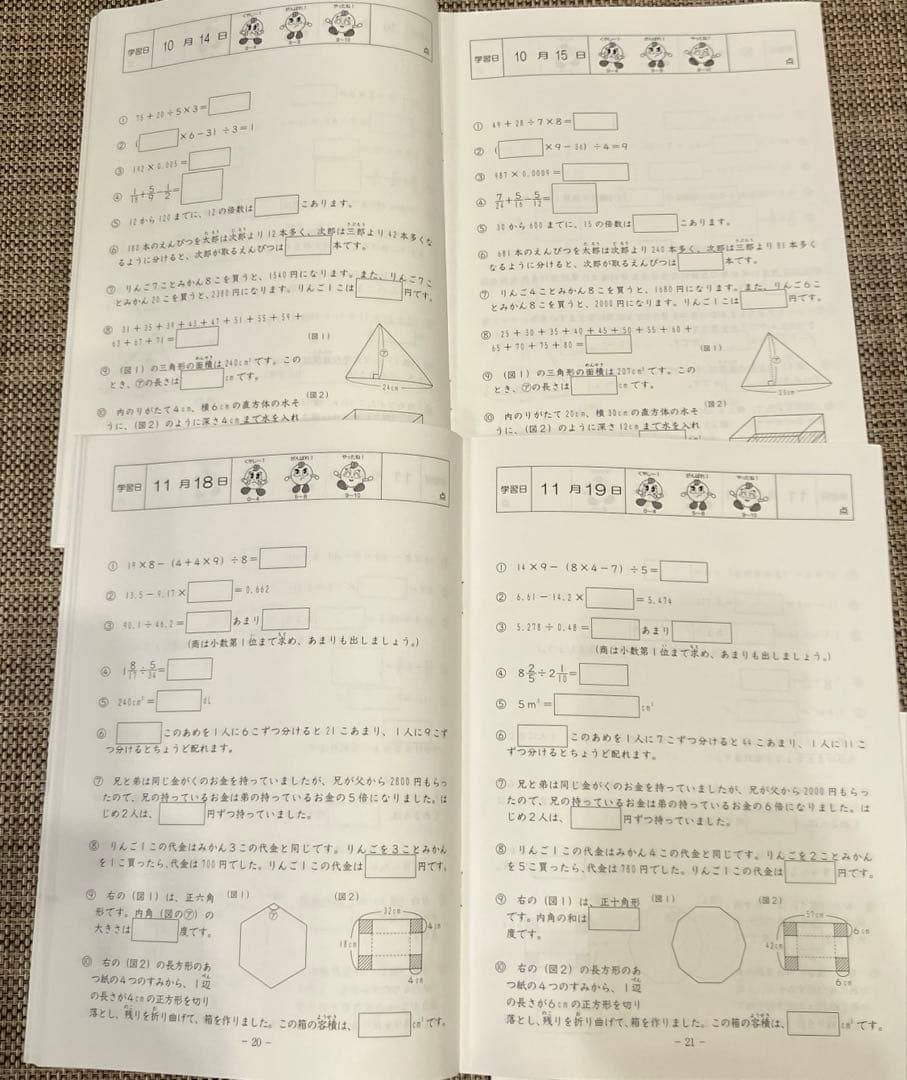 学習日 10月14日 くやしー! 0~4 がんばれ! 5~8 やったね! 9~10 点
① 75+20÷5×3=
② ( ×6-3)÷3=1
③ 192×0.005=
④ 1/18+5/9-1/2=
⑤ 12から120までに、12の倍数は こあります。
⑥ 180本のえんぴつを太郎は次郎より12本多く、次郎は三郎より42本多くな
るように分けると、次郎が取るえんぴつは 本です。
⑦ りんご7ことみかん8こを買うと、1540円になります。また、りんご7こ
とみかん20こを買うと、2380円になります。りんご1こは 円です。
⑧ 31+35+39+43+47+51+55+59+
63+67+71=
⑨ (図1)の三角形の面積は240cm²です。この
とき、㋐の長さは cmです。
(図1)
㋐
24cm
⑩ 内のりがたて4cm、横6cmの直方体の水そ
うに、(図2)のように深さ4cmまで水を入れ
(図2)
学習日 10月15日 くやしー! 0~4 がんばれ! 5~8 やったね! 9~10 点
① 49+28÷7×8=
② ( ×9-36)÷4=9
③ 987×0.0009=
④ 7/24+5/16-5/12=
⑤ 30から600までに、15の倍数は こあります。
⑥ 681本のえんぴつを太郎は次郎より240本多く、次郎は三郎より81本多く
なるように分けると、次郎が取るえんぴつは 本です。
⑦ りんご4ことみかん8こを買うと、1680円になります。また、りんご6こ
とみかん8こを買うと、2000円になります。りんご1こは 円です。
⑧ 25+30+35+40+45+50+55+60+
65+70+75+80=
⑨ (図1)の三角形の面積は207cm²です。この
とき、㋐の長さは cmです。
(図1)
㋐
23cm
⑩ 内のりがたて20cm、横30cmの直方体の水そ
うに、(図2)のように深さ12cmまで水を入れ
(図2)
学習日 11月18日 くやしー! 0~4 がんばれ! 5~8 やったね! 9~10 点
① 19×8-(4+4×9)÷8=
② 13.5-9.17× =0.662
③ 90.1÷46.2= あまり
(商は小数第1位まで求め、あまりも出しましょう。)
④ 1 8/17÷5/34=
⑤ 240cm³= dL
⑥ このあめを1人に6こずつ分けると21こあまり、1人に9こず
つ分けるとちょうど配れます。
⑦ 兄と弟は同じ金がくのお金を持っていましたが、兄が父から2800円もらっ
たので、兄の持っているお金は弟の持っているお金の5倍になりました。は
じめ2人は、 円ずつ持っていました。
⑧ りんご1この代金はみかん3この代金と同じです。りんごを3ことみかん
を1こ買ったら、代金は700円でした。りんご1この代金は 円です。
⑨ 右の(図1)は、正六角
形です。内角(図の㋐)の
大きさは 度です。
(図1)
㋐
(図2)
32cm
4cm
18cm
4cm
⑩ 右の(図2)の長方形のあ
つ紙の4つのすみから、1辺
の長さが4cmの正方形を切り
落とし、残りを折り曲げて、箱を作りました。この箱の容積は、 cm³です。
- 20 -
学習日 11月19日 くやしー! 0~4 がんばれ! 5~8 やったね! 9~10 点
① 14×9-(8×4-7)÷5=
② 6.61-14.2× =5.474
③ 5.278÷0.48= あまり
(商は小数第1位まで求め、あまりも出しましょう。)
④ 8 2/5÷2 1/10=
⑤ 5m³= cm³
⑥ このあめを1人に7こずつ分けると44こあまり、1人に11こ
ずつ分けるとちょうど配れます。
⑦ 兄と弟は同じ金がくのお金を持っていましたが、兄が父から2000円もらっ
たので、兄の持っているお金は弟の持っているお金の6倍になりました。は
じめ2人は、 円ずつ持っていました。
⑧ りんご1この代金はみかん4この代金と同じです。りんごを2ことみかん
を5こ買ったら、代金は780円でした。りんご1この代金は 円です。
⑨ 右の(図1)は、正十角形
です。内角の和は
度です。
(図1)
(図2)
57cm
6cm
42cm
6cm
⑩ 右の(図2)の長方形のあ
つ紙の4つのすみから、1辺
の長さが6cmの正方形を切り
落とし、残りを折り曲げて、箱を作りました。この箱の容積は、 cm³です。
- 21 -